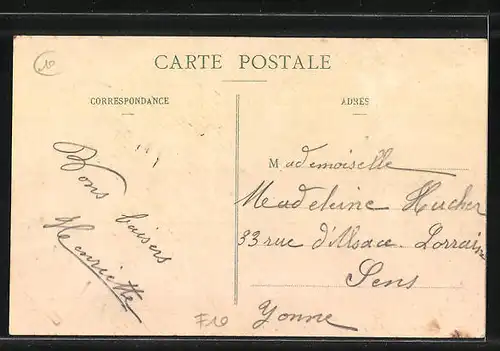 10
CARTE POSTALE
CORRESPONDANCE
Bons baisers
Henriette
ADRES
Mademoiselle
Madeleine Hucher
33 rue d'Alsace-Lorraine
Sens
Yonne
F10